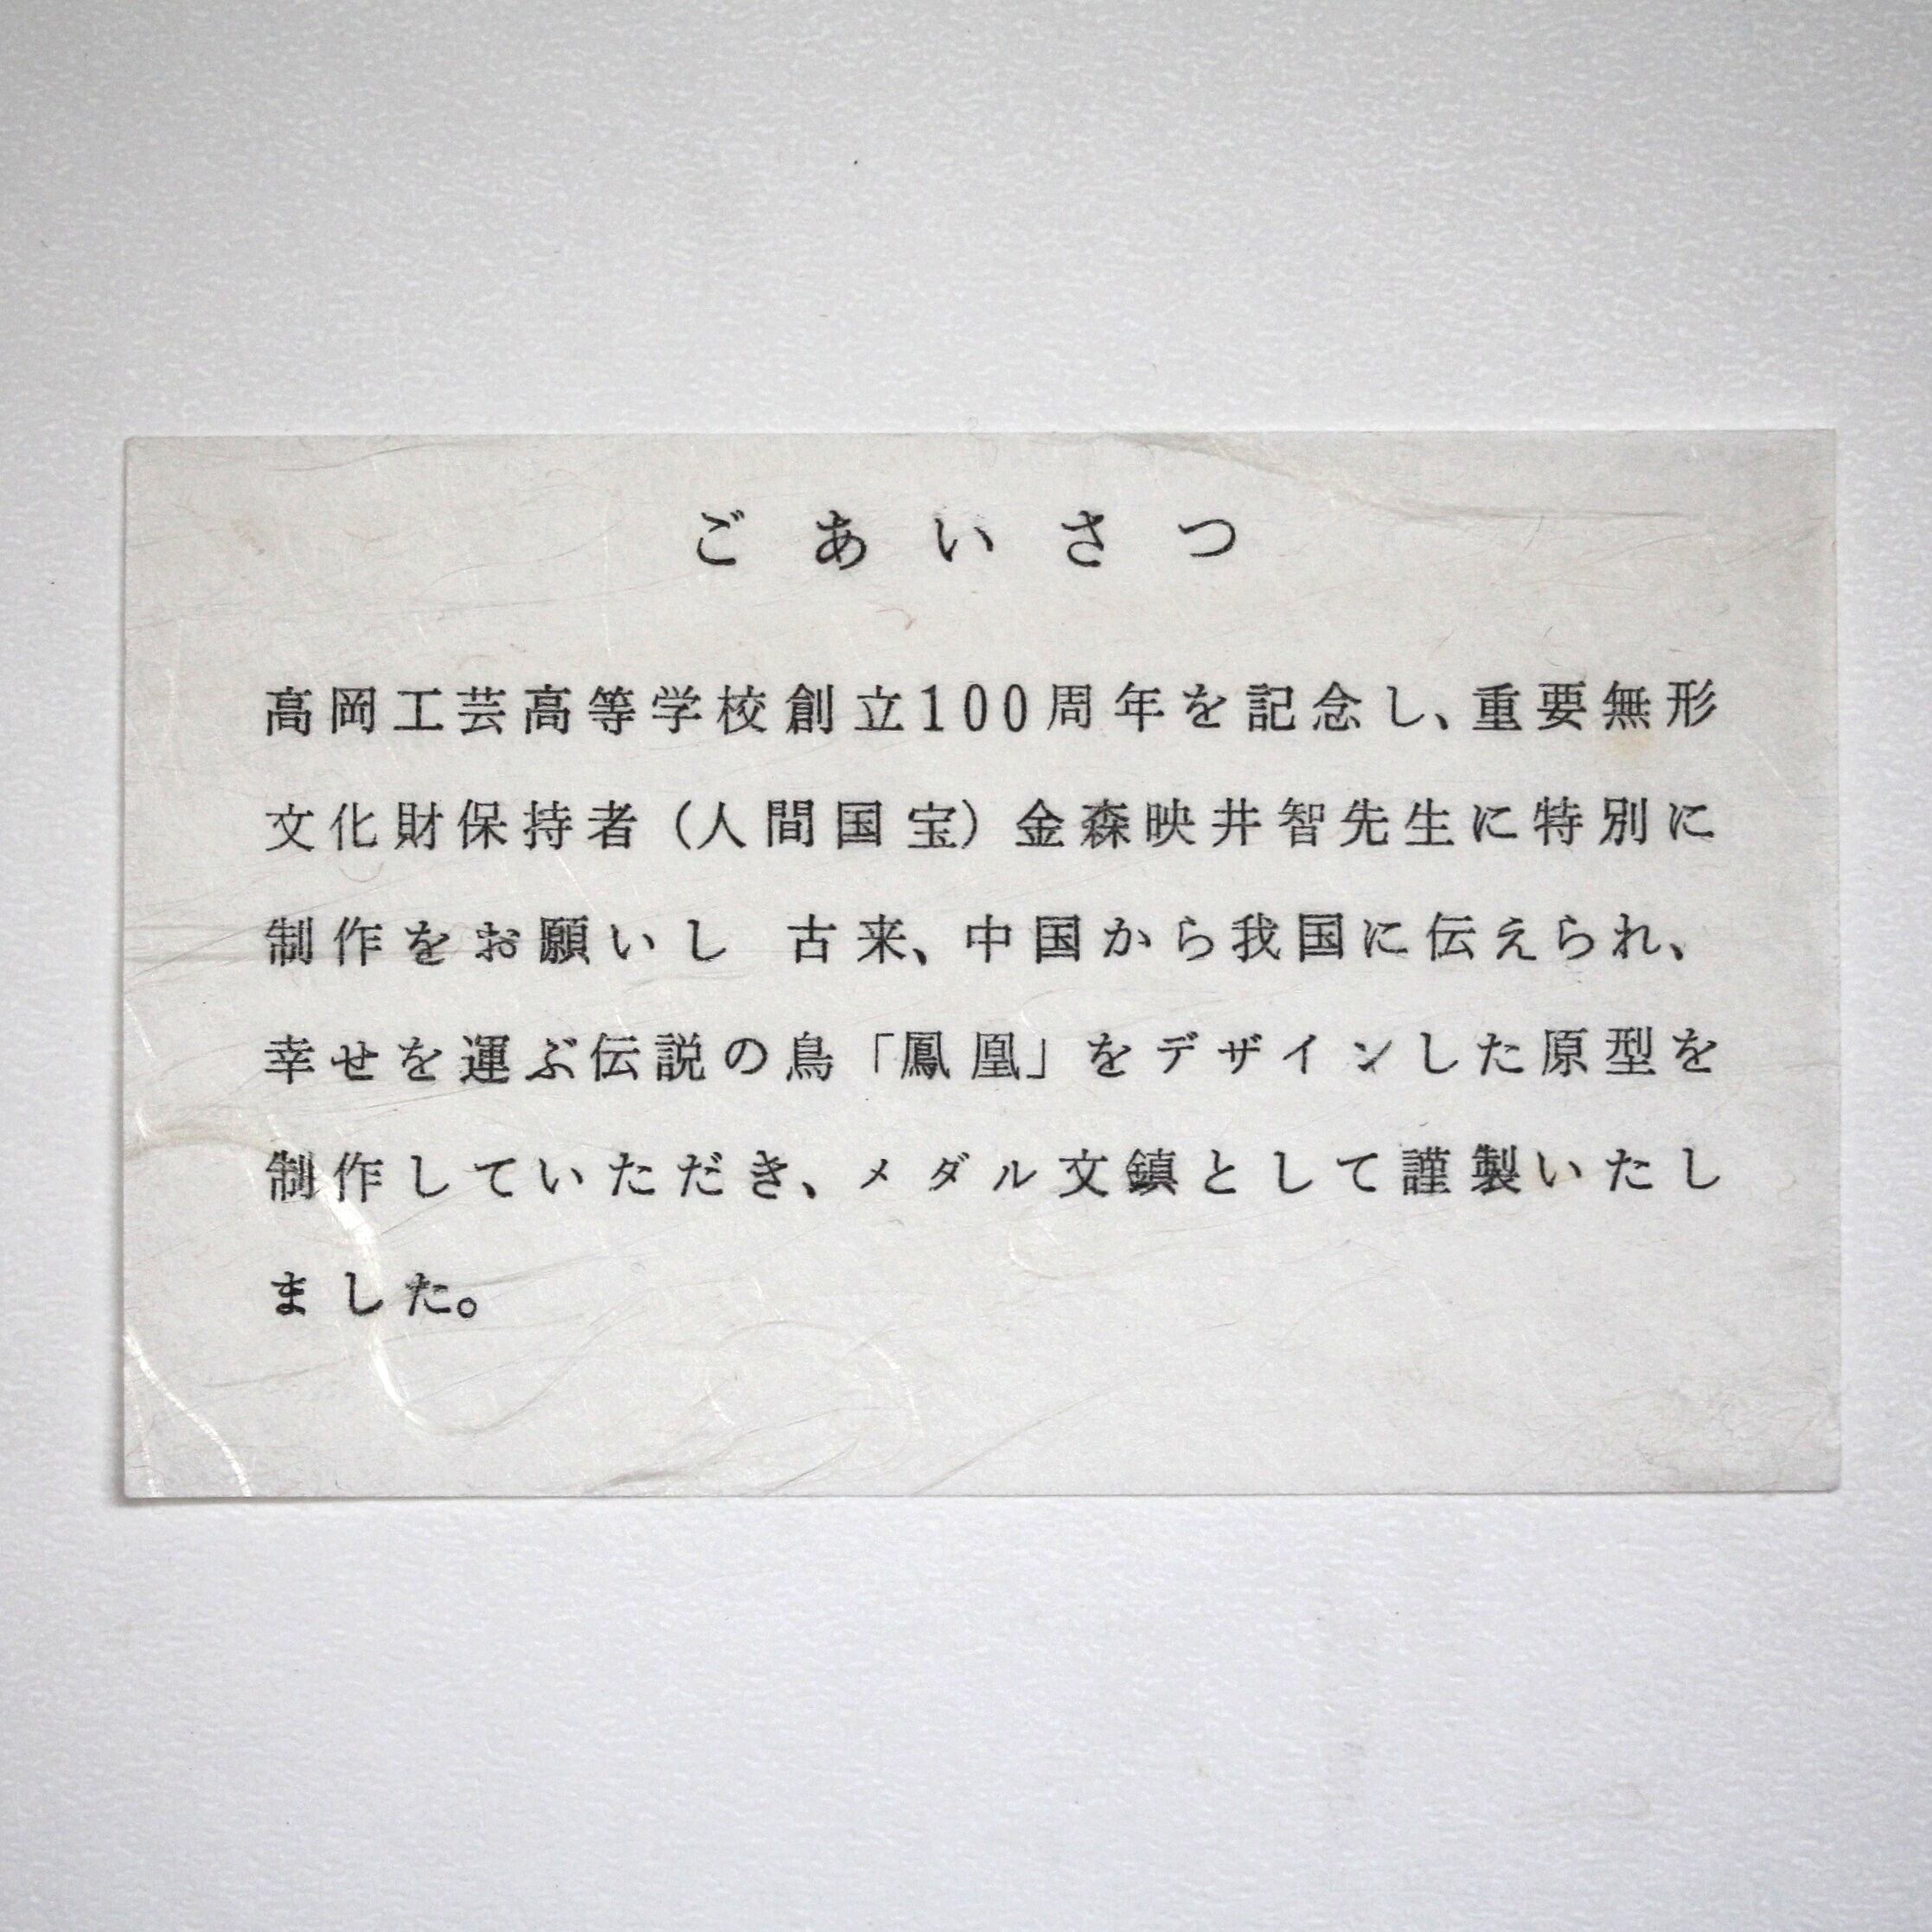 ごあいさつ
高岡工芸高等学校創立100周年を記念し、重要無形
文化財保持者（人間国宝）金森映井智先生に特別に
制作をお願いし　古来、中国から我国に伝えられ、
幸せを運ぶ伝説の鳥「鳳凰」をデザインした原型を
制作していただき、メダル文鎮として謹製いたし
ました。